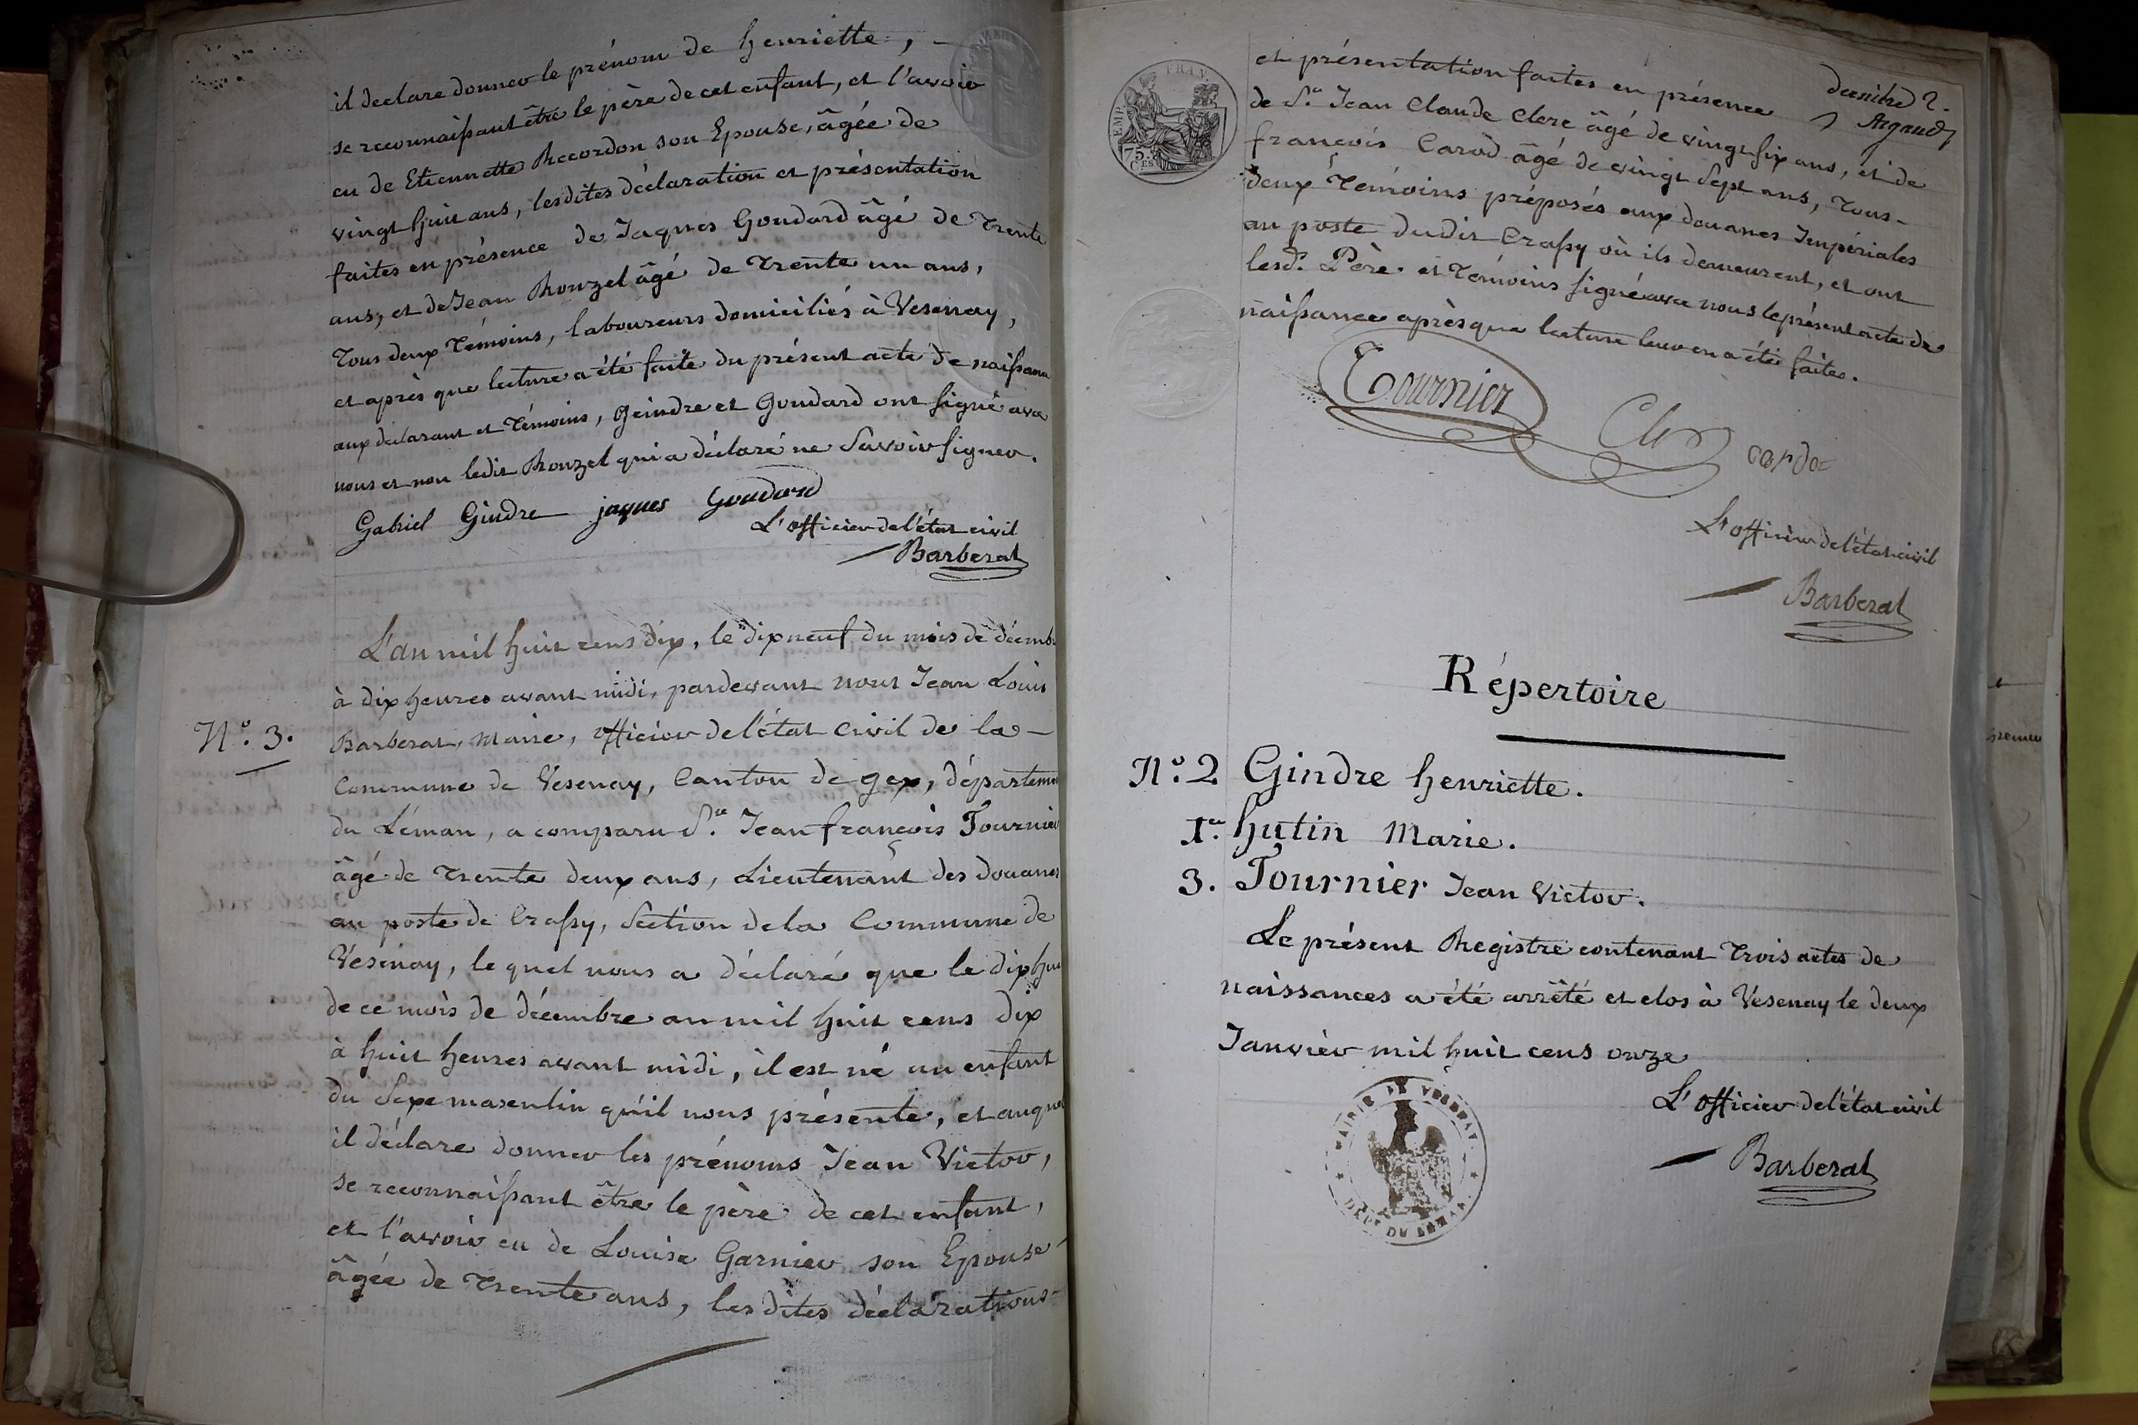 il declare donner le prénom de henriette, —
se reconnaissant être le père de cet enfant, et l'avoir
eu de Etiennette Recordon son Epouse, âgée de
vingt huit ans, lesdites déclaration et présentation
faites en présence de Jaques Goudard âgé de trente
ans, et de Jean Rouzel âgé de trente un ans,
tous deux témoins, laboureurs domiciliés à Vesenay,
et après que lecture a été faite du présent acte de naissance
aux déclarant et témoins, Geindre et Goudard ont signé avec
nous et non ledit Rouzel qui a déclaré ne savoir signer.
Gabriel Gindre jaques Goudard
L'officier de l'état civil
Barberat
N.o 3.
L'an mil huit cens dix, le dix neuf du mois de décemb
à dix heures avant midi, pardevant nous Jean Louis
Barberat, Maire, officier de l'état civil de la —
Commune de Vesenay, Canton de gex, départeme
du Léman, a comparu S.r Jean françois Tournier
âgé de trente deux ans, Lieutenant des douanes
au poste de Crassy, Section de la Commune de
Vésenay, le quel nous a déclaré que le dix hui
de ce mois de décembre an mil huit cens dix
à huit heures avant midi, il est né un enfant
du Sexe masculin qu'il nous présente, et auquel
il déclare donner les prénoms Jean Victor,
se reconnaissant être le père de cet enfant,
et l'avoir eu de Louise Garnier son Epouse
âgée de trente ans, les dites déclarations
dernière 2.
Argand
et présentation faites en présence
de S.r Jean Claude Clerc âgé de vingt six ans, et de
françois Carod âgé de vingt sept ans, tous
deux témoins préposés aux douanes Impériales
au poste dudit Crassy où ils demeurent, et ont
lesd.s Père et témoins signé avec nous le présent acte de
naissance après que lecture leur en a été faites.
Tournier
Clerc
L'officier de l'état civil
Barberat
75.
CES
Répertoire
N.o 2 Gindre henriette.
1.er hutin Marie.
3. Tournier Jean Victor.
Le présent Registre contenant trois actes de
naissances a été arrêté et clos à Vesenay le deux
Janvier mil huit cens onze
L'officier de l'état civil
Barberat
MAIRIE DE VESENAY
DEPT DU LÉMAN